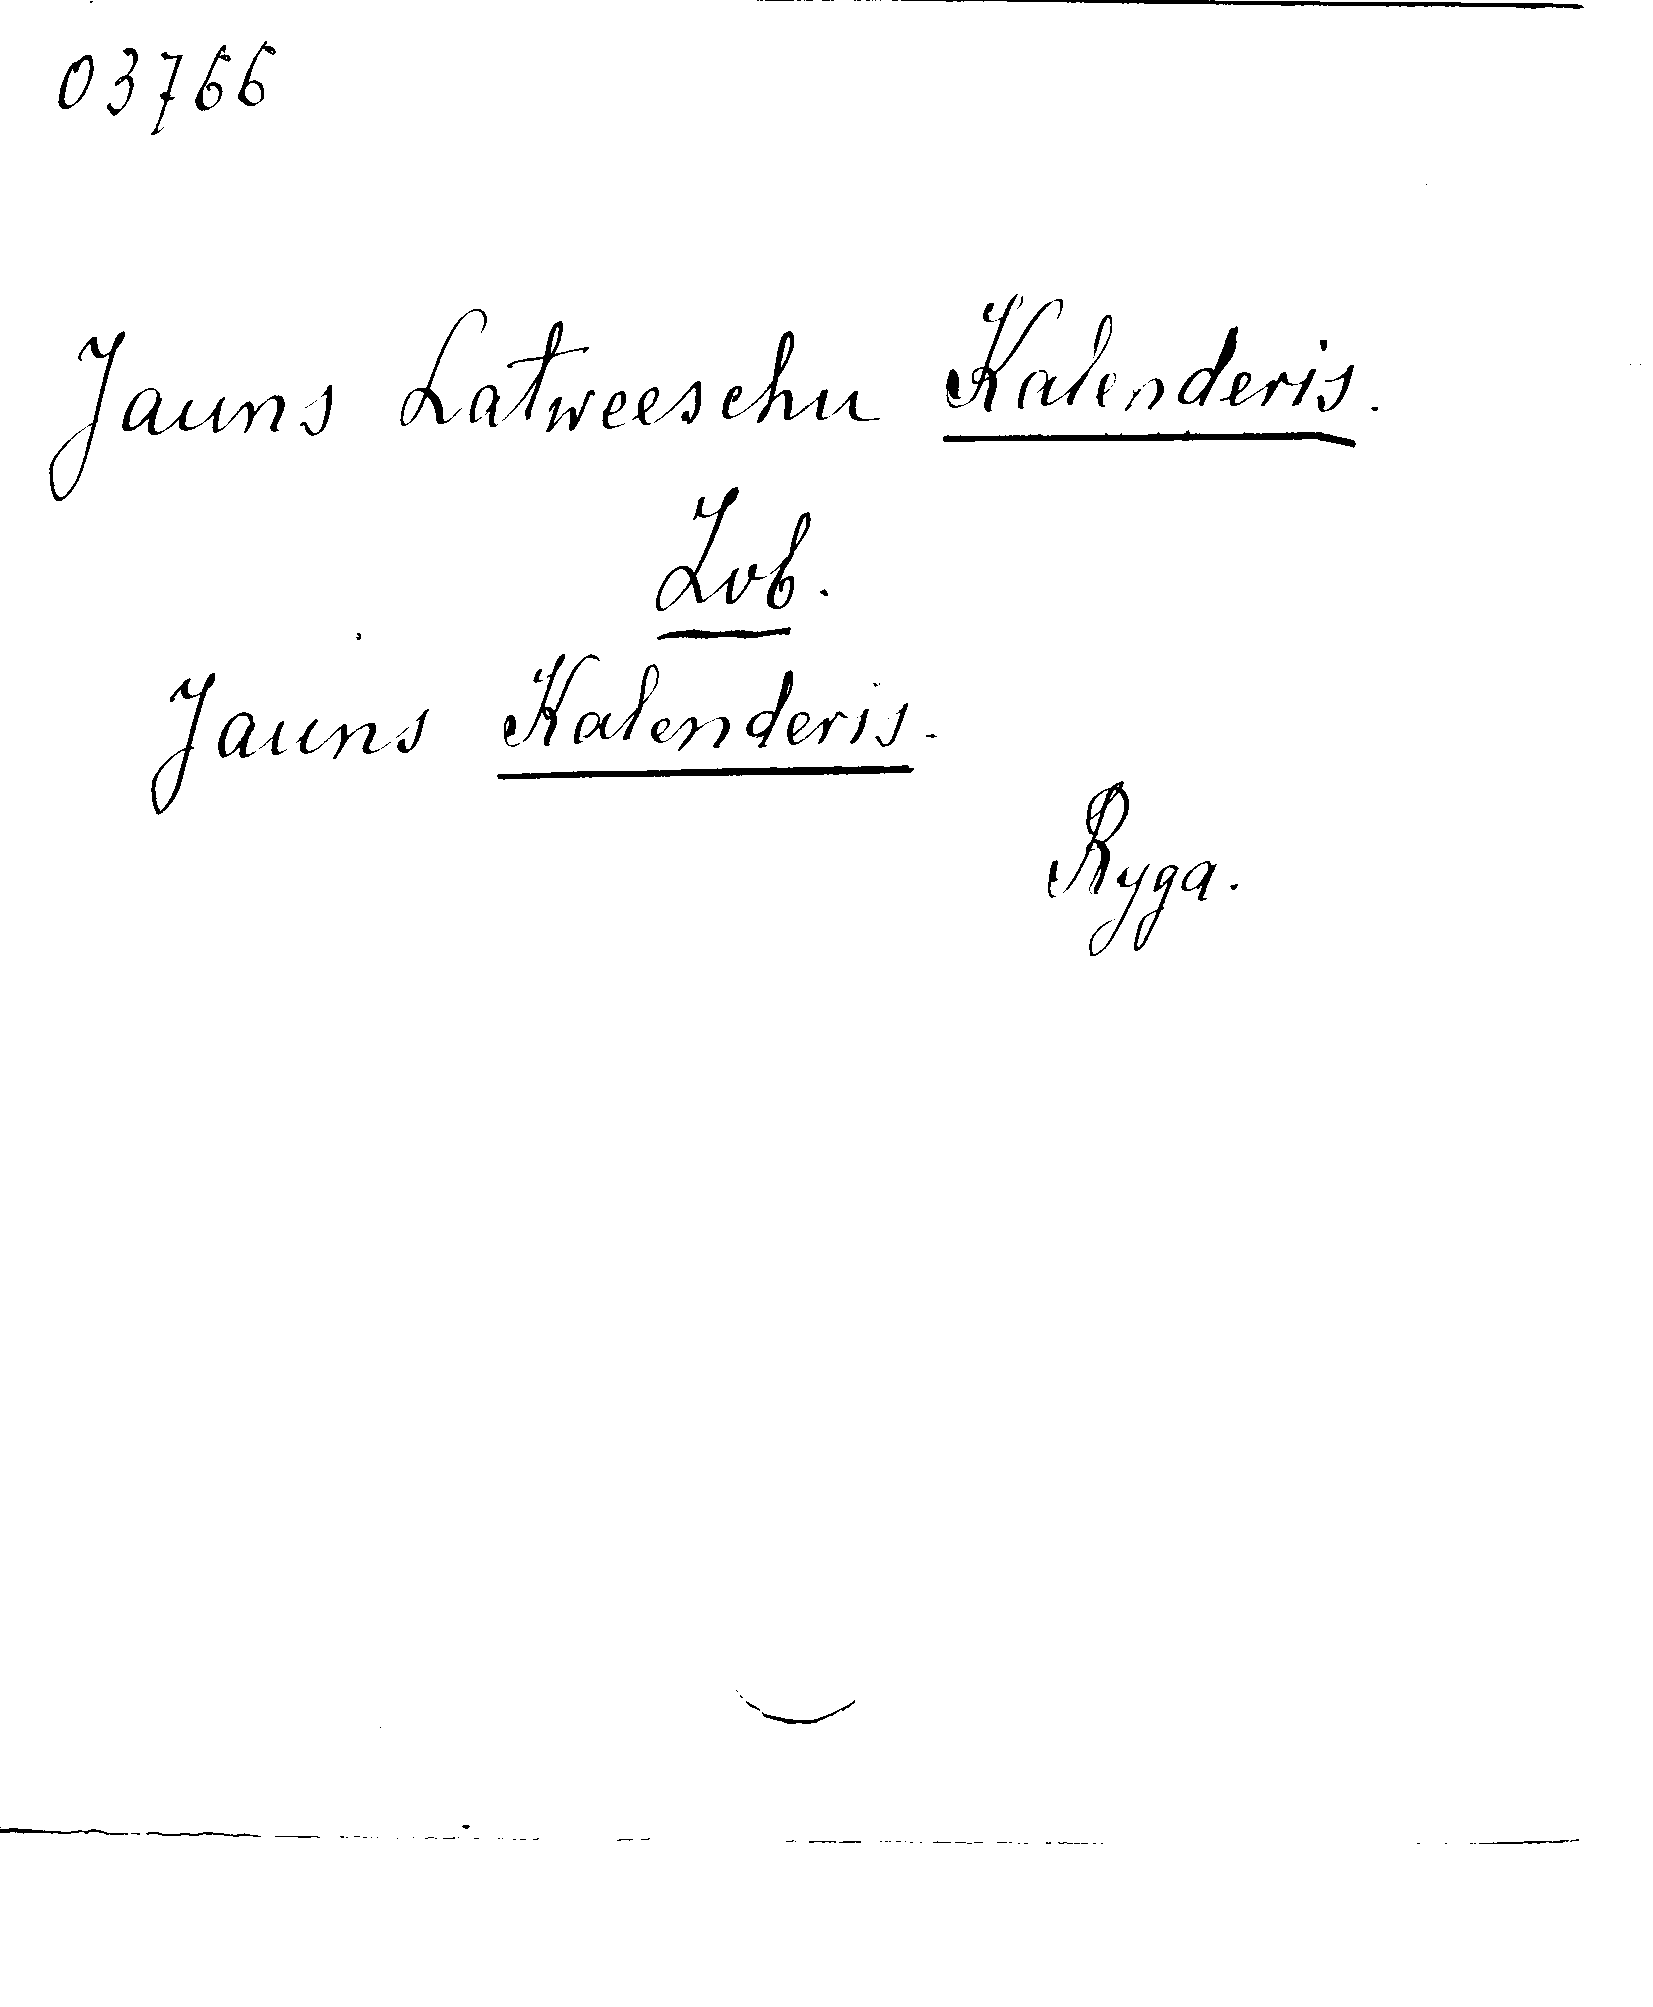 03766
Jauns Latweeschu Kalenderis.
Zob.
Jauns Kalenderis.
Ryga.